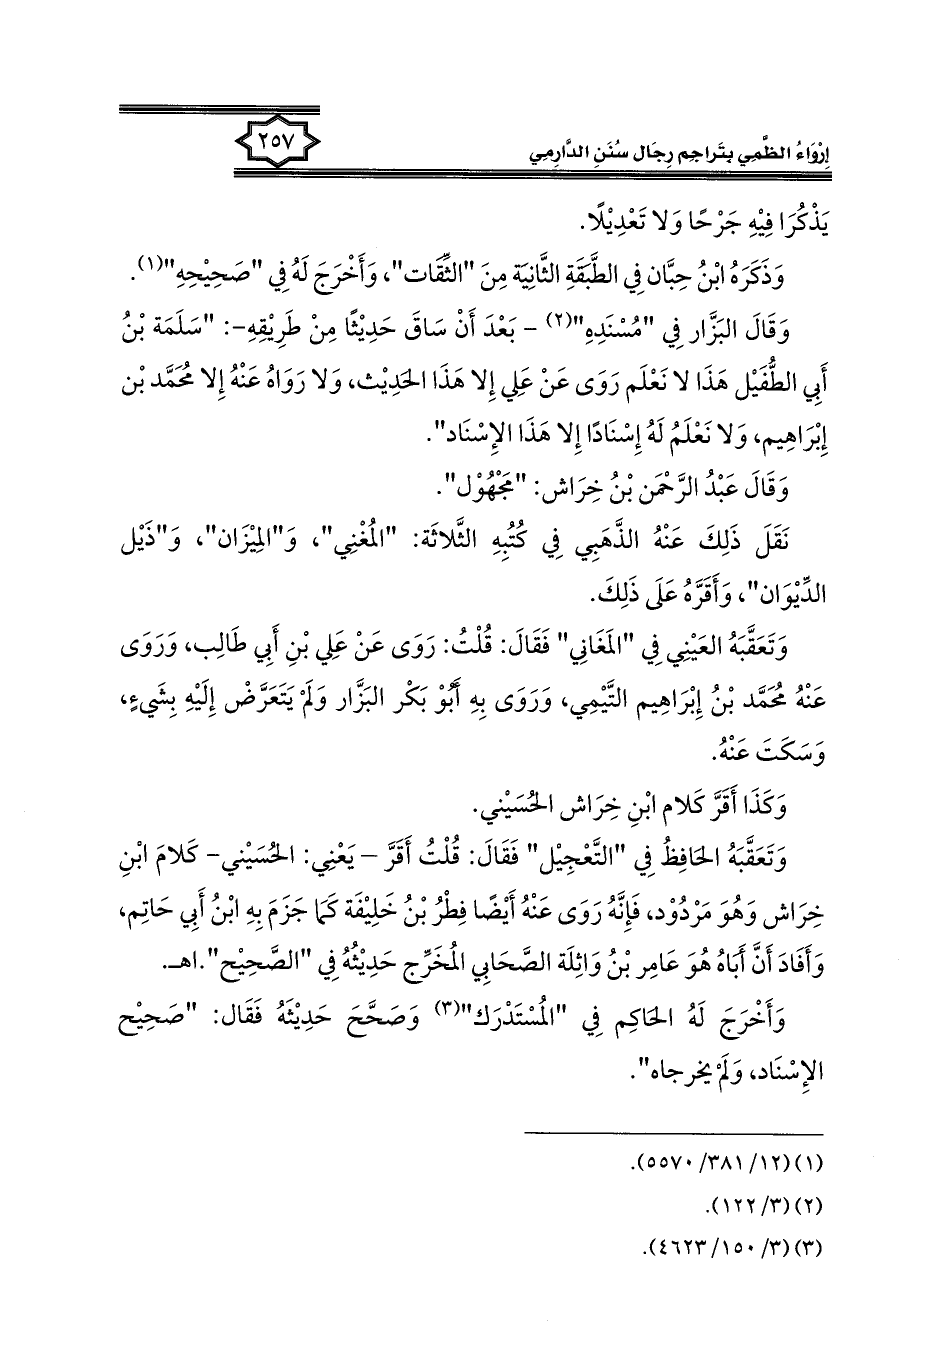 إِرْوَاءُ الظَّمِي بتَراجِم رِجَال سُنَنِ الدَّارِمِي
٢٥٧
يَذْكُرَا فِيْهِ جَرْحًا وَلا تَعْدِيْلًا.
وَذَكَرَهُ ابْنُ حِبَّان فِي الطَّبَقَةِ الثَّانِيَة مِنَ "الثِّقَات"، وَأَخْرَجَ لَهُ فِي "صَحِيْحِهِ"(١).
وَقَالَ البَزَّار فِي "مُسْنَدِهِ"(٢) - بَعْدَ أَنْ سَاقَ حَدِيْثًا مِنْ طَرِيْقِهِ-: "سَلَمَة بْنُ
أَبِي الطُّفَيْل هَذَا لا نَعْلَم رَوَى عَنْ عَلِي إِلا هَذَا الحَدِيْث، وَلا رَوَاهُ عَنْهُ إِلا مُحَمَّد بْن
إِبْرَاهِيم، وَلا نَعْلَمُ لَهُ إِسْنَادًا إِلا هَذَا الإِسْنَاد".
وَقَالَ عَبْدُ الرَّحْمَن بْنُ خِرَاش: "مَجْهُوْل".
نَقَلَ ذَلِكَ عَنْهُ الذَّهَبِي فِي كُتُبِهِ الثَّلاثَة: "المُغْنِي"، وَ"المِيْزَان"، وَ"ذَيْل
الدِّيْوَان"، وَأَقَرَّهُ عَلَى ذَلِكَ.
وَتَعَقَّبَهُ العَيْنِي فِي "المَغَانِي" فَقَالَ: قُلْتُ: رَوَى عَنْ عَلِي بْنِ أَبِي طَالِب، وَرَوَى
عَنْهُ مُحَمَّد بْنُ إِبْرَاهِيم التَّيْمِي، وَرَوَى بِهِ أَبُوْ بَكْر البَزَّار وَلَمْ يَتَعَرَّضْ إِلَيْهِ بِشَيءٍ،
وَسَكَتَ عَنْهُ.
وَكَذَا أَقَرَّ كَلام ابْنِ خِرَاش الحُسَيْنِي.
وَتَعَقَّبَهُ الحَافِظُ فِي "التَّعْجِيْل" فَقَالَ: قُلْتُ أَقَرَّ – يَعْنِي: الحُسَيْنِي- كَلامَ ابْنِ
خِرَاش وَهُوَ مَرْدُوْد، فَإِنَّهُ رَوَى عَنْهُ أَيْضًا فِطْرُ بْنُ خَلِيْفَة كَمَا جَزَمَ بِهِ ابْنُ أَبِي حَاتِم،
وَأَفَادَ أَنَّ أَبَاهُ هُوَ عَامِر بْنُ وَاثِلَة الصَّحَابِي المُخَرَّج حَدِيْثُهُ فِي "الصَّحِيْح".اهـ.
وَأَخْرَجَ لَهُ الحَاكِم فِي "المُسْتَدْرَك"(٣) وَصَحَّحَ حَدِيْثَهُ فَقَال: "صَحِيْح
الإِسْنَاد، وَلَمْ يخرجاه".
(١) (١٢/ ٣٨١/ ٥٥٧٠).
(٢) (٣/ ١٢٢).
(٣) (٣/ ١٥٠/ ٤٦٢٣).